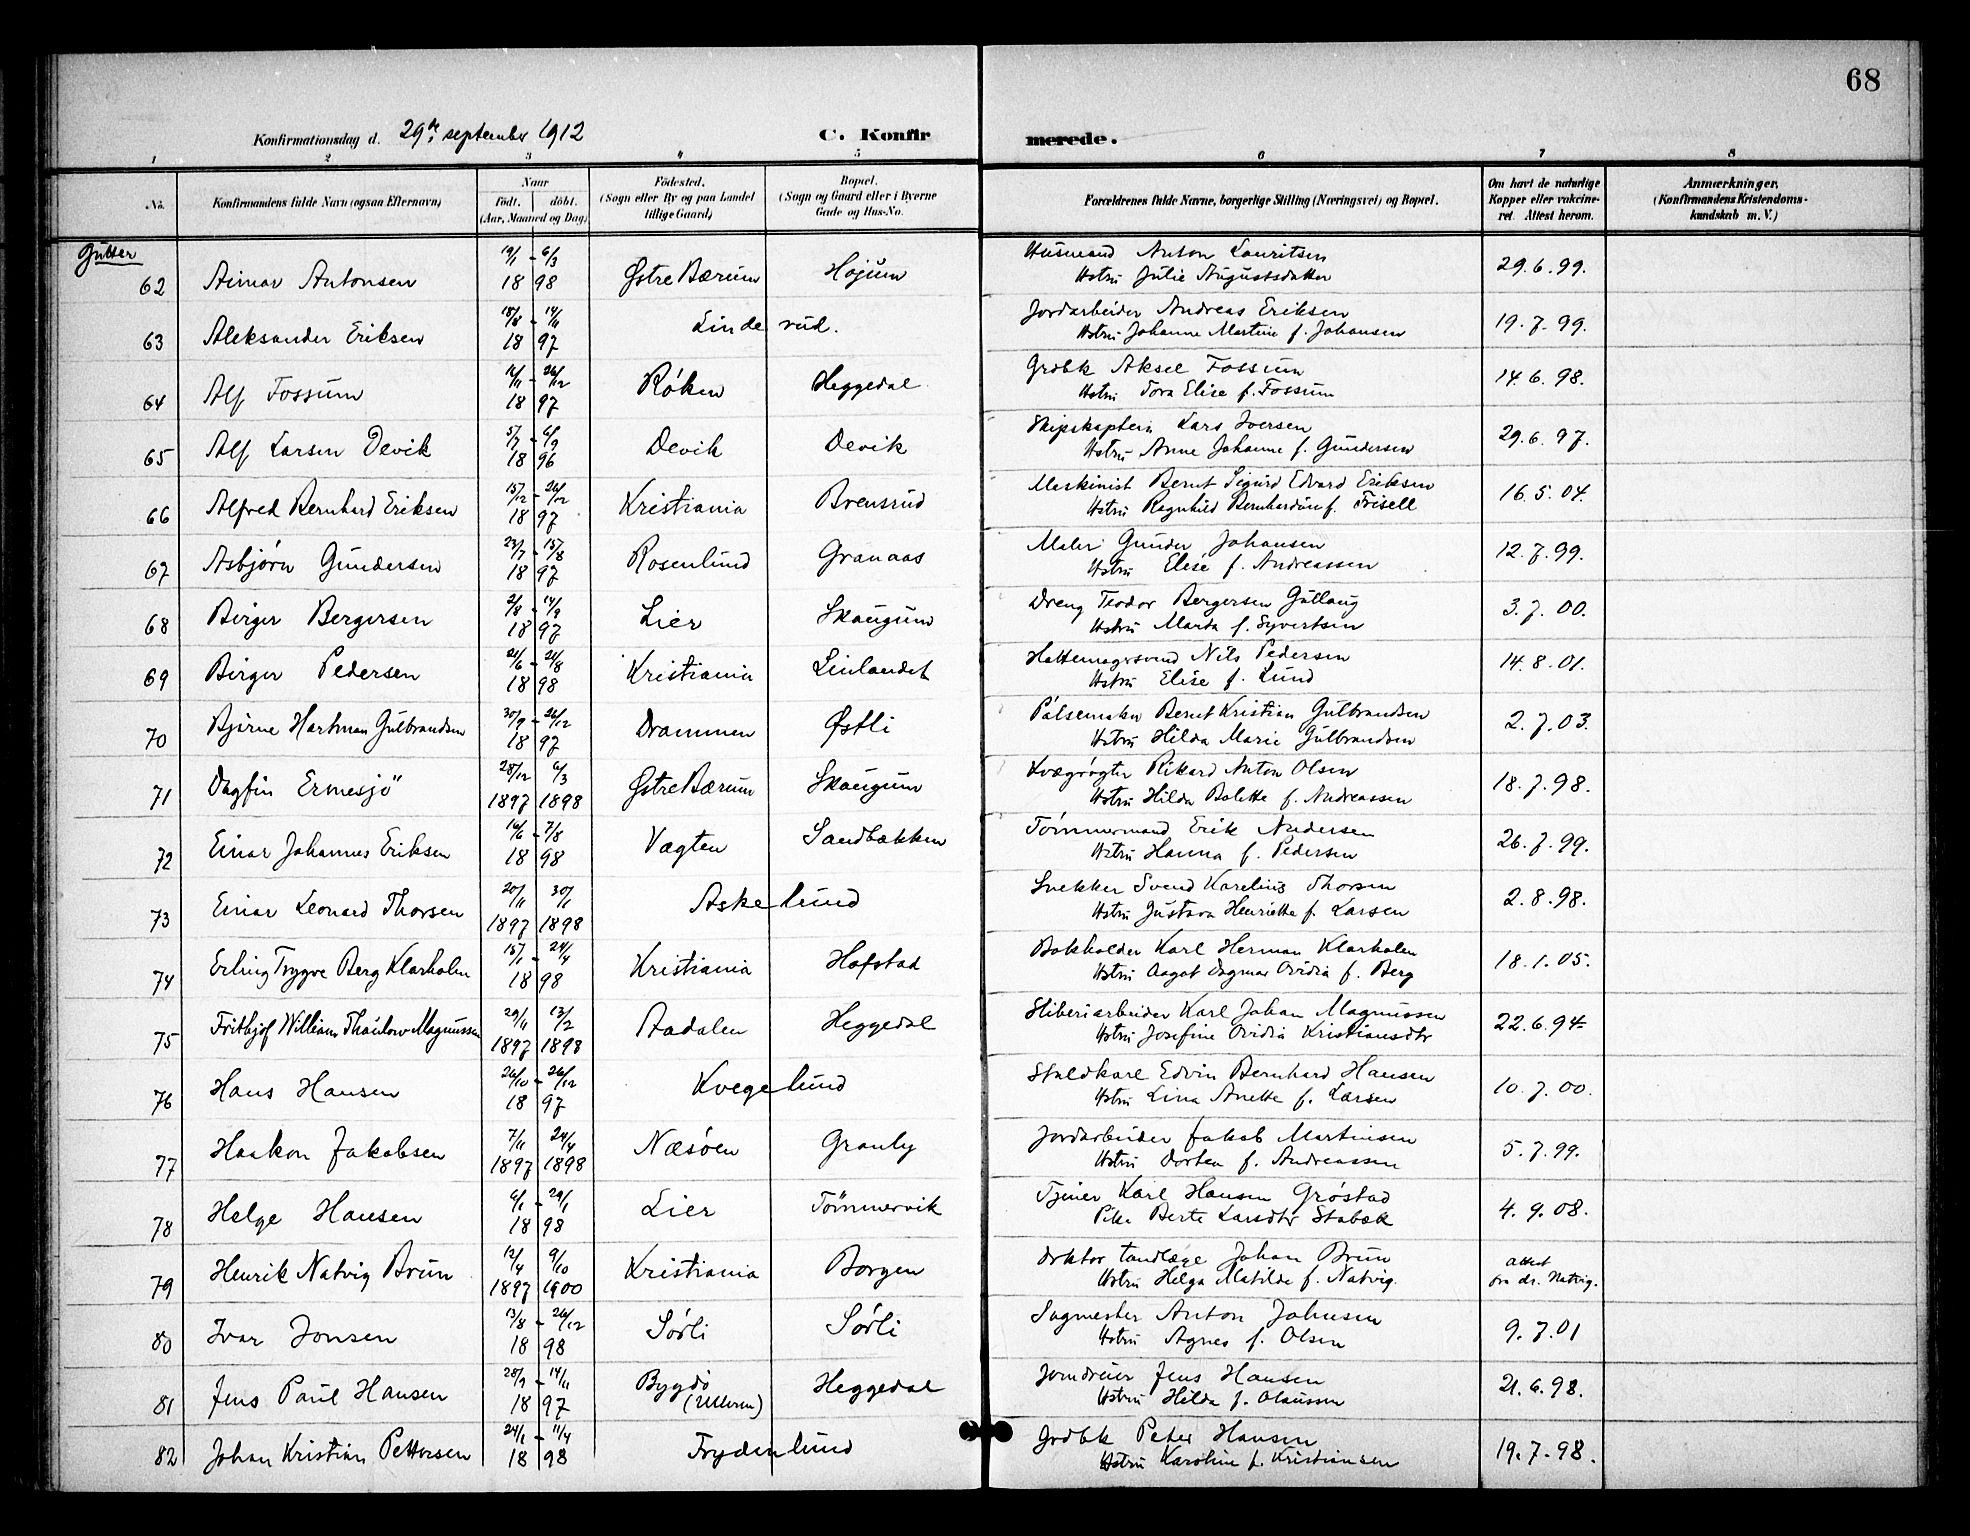 68
Konfirmationsdag d. 29de september 1912
C. Konfirmerede.
1 2 3 4 5 6 7 8
No.
Konfirmandens fulde Navn (ogsaa Efternavn)
Naar
født. døbt.
(Aar, Maaned og Dag)
Födested.
(Sogn eller By og paa Landet
tillige Gaard)
Bopæl.
(Sogn og Gaard eller i Byerne
Gade og Hus-No.
Forældrenes fulde Navne, borgerlige Stilling (Næringsvei) og Bopæl.
Om havt de naturlige
Kopper eller vakcine-
ret. Attest herom.
Anmærkninger.
(Konfirmandens Kristendoms-
kundskab m. V.)
Gutter
62 Aimar Antonsen 19/1 - 6/3 1898 Østre Bærum Højum Husmand Anton Lauritsen
Hstru Julie Augustsdatter 29.6.99.
63 Aleksander Eriksen 18/8 - 14/11 1897 Linderud. Jordarbeider Andreas Eriksen
Hstru Johanne Martine f. Johansen 19.7.99.
64 Alf Fossum 12/11 - 26/12 1897 Røken Heggedal Grdbk Aksel Fossum
Hstru Tora Elise f. Fossum 14.6.98.
65 Alf Larsen Devik 5/7 - 6/9 1896 Devik Devik Skipskaptein Lars Iversen
Hstru Anne Johanne f. Gundersen 29.6.97.
66 Alfred Bernhard Eriksen 15/12 - 26/12 1897 Kristiania Brensrud Maskinist Bernt Sigurd Edvard Eriksen
Hstru Ragnhild Bernhardine f. Frisell 16.5.04.
67 Asbjørn Gundersen 23/7 - 15/8 1897 Rosenlund Granaas Maler Gunder Johansen
Hstru Elise f. Andreassen 12.7.99.
68 Birger Bergersen 2/8 - 14/9 1897 Lier Skaugum Dreng Teodor Bergersen Gullaug
Hstru Marta f. Syvertsen 3.7.00.
69 Birger Pedersen 21/6 - 21/8 1898 Kristiania Leulandet Hattemagersvend Nils Pedersen
Hstru Elise f. Lund 14.8.01.
70 Bjarne Hartman Gulbrandsen 30/9 - 26/12 1897 Drammen Østli Pølsemaker Bernt Kristian Gulbrandsen
Hstru Hilda Marie Gulbrandsen 2.7.03.
71 Dagfin Ermesjö 28/12 6/3 1897 1898 Østre Bærum Skaugum Kvægrøgter Rikard Anton Olsen
Hstru Hilda Bolette f. Andreassen 18.7.98.
72 Einar Johannes Eriksen 16/6 - 7/8 1898 Vagten Sandbakken Tømmermand Erik Andersen
Hstru Hanna f. Pedersen 26.7.99.
73 Einar Leonard Thorsen 20/11 30/1 1897 1898 Askelund Snekker Svend Karelius Thorsen
Hstru Gustava Henriette f. Larsen 2.8.98.
74 Erling Trygve Berg Klarholm 15/1 - 24/4 1898 Kristiania Hofstad Bokholder Karl Herman Klarholm
Hstru Aagot Dagmar Ovidia f. Berg 18.1.05.
75 Frithjof William Thaulow Magnussen 29/11 13/2 1897 1898 Aadalen Heggedal Sliberiarbeider Karl Johan Magnussen
Hstru Josefine Ovidia Kristiansdtr 22.6.94.
76 Hans Hansen 26/10 - 26/12 1897 Kvegelund Staldkarl Edvin Bernhard Hansen
Hstru Lina Anette f. Larsen 10.7.00.
77 Haakon Jakobsen 7/11 24/4 1897 1898 Næsøen Granly Jordarbeider Jakob Martinsen
Hstru Dorten f. Andreassen 5.7.99.
78 Helge Hansen 6/1 - 29/1 1898 Lier Tømmervik Tjener Karl Hansen Grøstad
Pike Berte Larsdtr Stabæk 4.9.08.
79 Henrik Natvig Brun 12/4 9/10 1897 1900 Kristiania Borgen Doktor tandlæge Johan Brun
Hstru Helga Matilde f. Natvig. attest
fra dr. Natvig.
80 Ivar Jonsen 13/8 - 26/12 1898 Sørli Sørli Sagmester Anton Johnsen
Hstru Agnes f. Olsen 9.7.01
81 Jens Paul Hansen 28/9 - 14/11 1897 Bygdø
(Ullern) Heggedal Jerndreier Jens Hansen
Hstru Hilda f. Olaussen 21.6.98.
82 Johan Kristian Pettersen 24/1 - 11/4 1898 Frydenlund Grdbk Peter Hansen
Hstru Karoline f. Kristiansen 19.7.98.